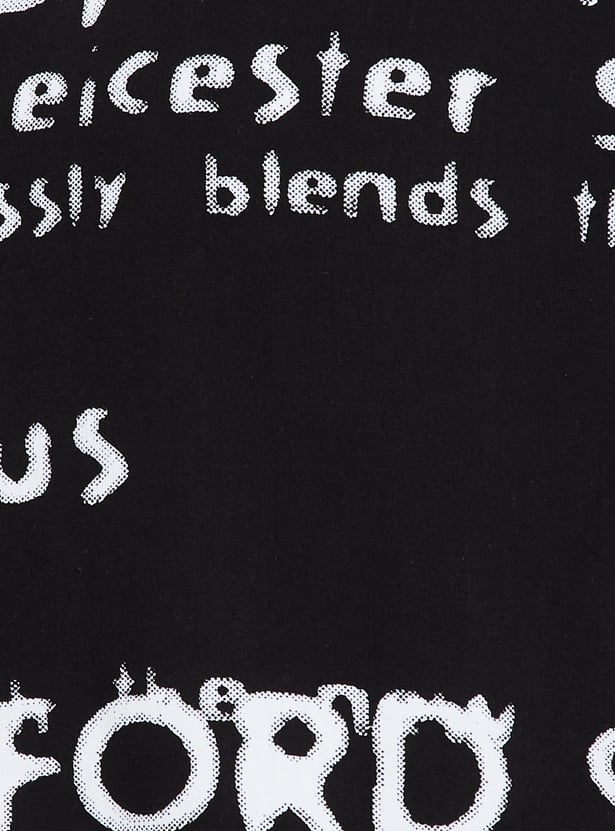 eicester
ssly blends
us
FORD